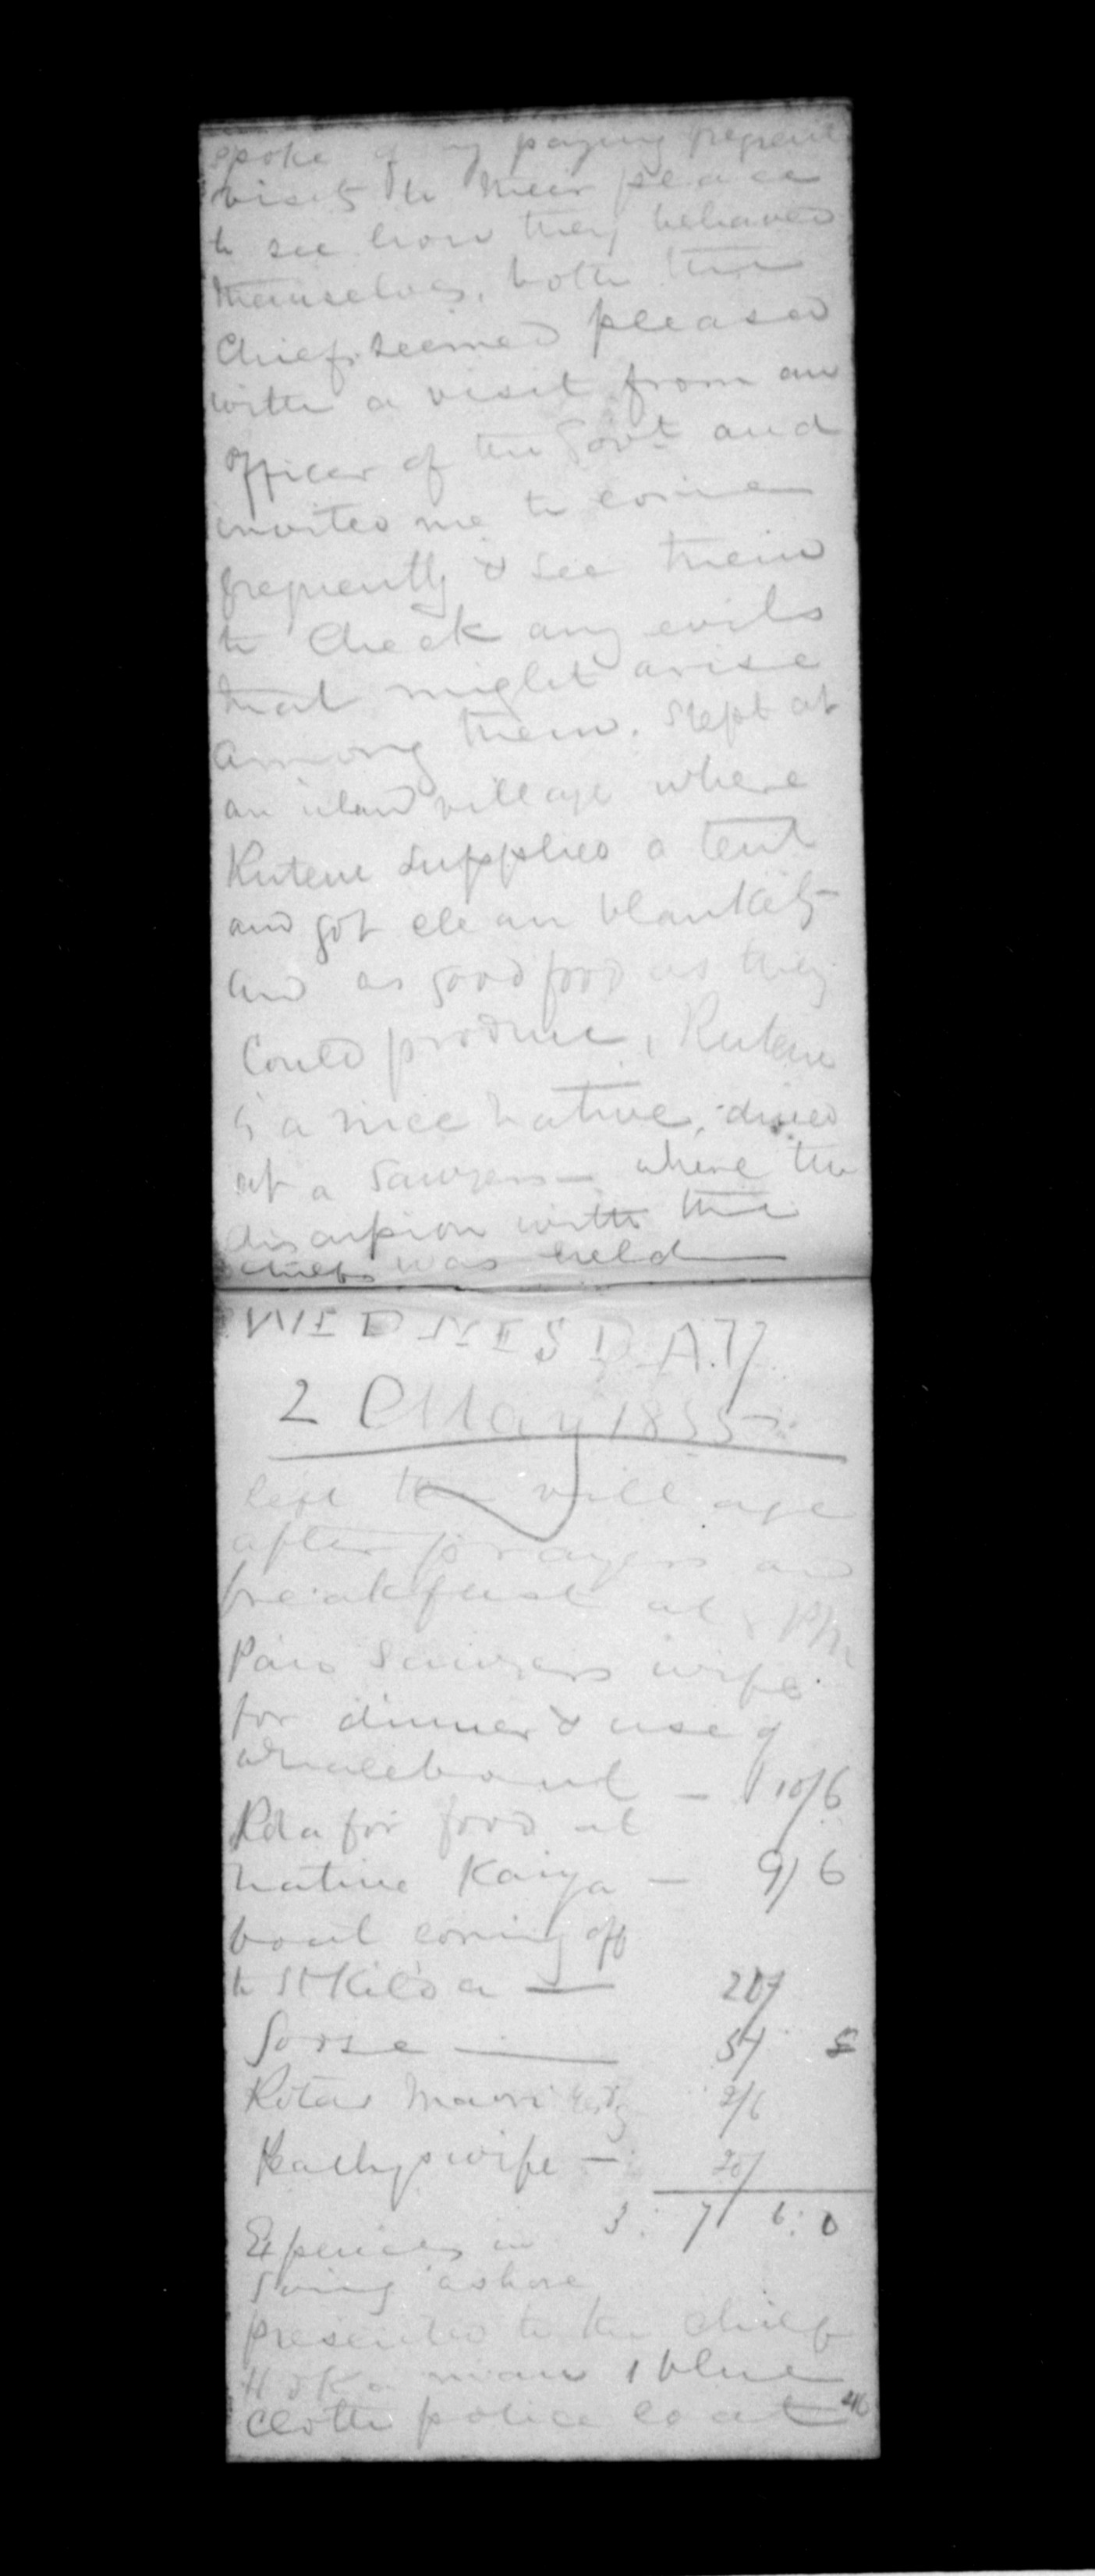 spoke of my paying frequent
visits to their place
to see how they behaved
themselves, both the
Chiefs seemed pleased
with a visit from an
Officer of the Govt and
invited me to come
frequently & see them
to Check any evils
that might arise
among them. Slept at
an inland village where
Rutene supplied a tent
and got clean blankets
and as good food as they
Could produce, Rutene
is a nice native, dined
at a Sawyers — where the
discussion with the
chiefs was held —
WEDNESDAY
2 May 1855
left the village
after prayers and
breakfast at 8 PM
Paid Sawyers wife
for dinner & use of
whaleboat — 10/6
for food at
native Kainga — 9/6
boat coming off
to St Kilda — 20/
5/
Maori 2/6
wife — 20/
3: 7 6: 0
Expences in
going ashore
presented to the chief
1 blue
cloth police coat